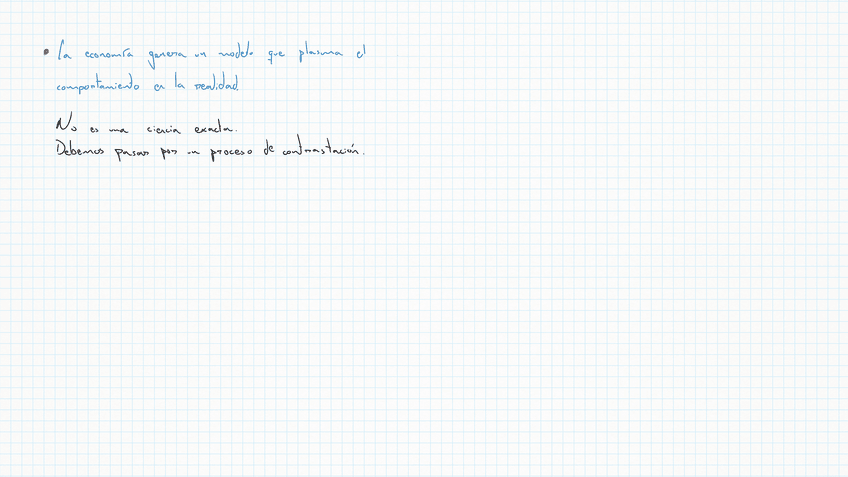 • La economía genera un modelo que plasma el
comportamiento en la realidad.
No es una ciencia exacta.
Debemos pasar por un proceso de contrastación.